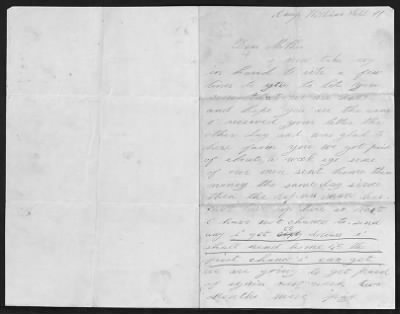 Camp
Dear Mother
I now take my
in hand to rite a few
lines to you to let you
and hope you are the same
I received your letter the
other day and was glad to
hear from you we got paid
of about a week ago some
of our men sent home their
money the same day since
then the
I have not chance to send
my i got down i
shall send home it the
first chance i can get
we are going to get paid
of again next week two
months more pay